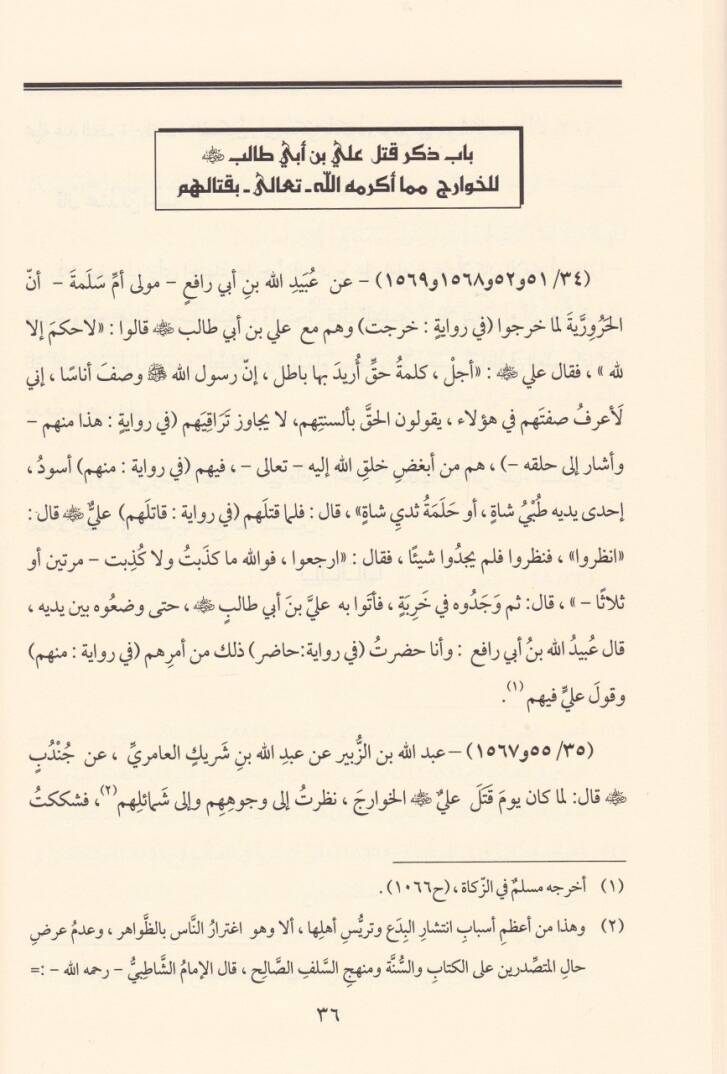 باب ذكر قتل علي بن أبي طالب ﵁
للخوارج مما أكرمه الله - تعالى - بقتالهم
(٣٤/ ٥١و٥٢و١٥٦٨و١٥٦٩) - عن عُبَيدِ الله بنِ أبي رافعٍ - مولى أمِّ سَلَمةَ - أنّ
الحَرُورِيَّةَ لما خرجوا (في روايةٍ : خرجت) وهم مع علي بن أبي طالب ﵁ قالوا : «لا حكمَ إلا
لله» ، فقال علي ﵁ : «أجلْ ، كلمةُ حقٍّ أُريدَ بها باطل ، إنّ رسول الله ﷺ وصفَ أناسًا ، إني
لَأعرفُ صفتَهم في هؤلاء ، يقولون الحقَّ بألسنتِهم، لا يجاوز تَرَاقِيَهم (في روايةٍ : هذا منهم -
وأشار إلى حلقه -) ، هم من أبغضِ خلقِ الله إليه - تعالى - ، فيهم (في رواية : منهم) أسودُ ،
إحدى يديه طُبْيُ شاةٍ ، أو حَلَمَةُ ثديِ شاةٍ» ، قال : فلما قتلَهم (في رواية : قاتلَهم) عليٌّ ﵁ قال :
«انظروا» ، فنظروا فلم يجدُوا شيئًا ، فقال : «ارجعوا ، فوالله ما كذَبتُ ولا كُذِبت - مرتين أو
ثلاثًا - » ، قال: ثم وَجَدُوه في خَرِبَةٍ ، فأتَوا به عليَّ بنَ أبي طالبٍ ﵁ ، حتى وضعُوه بين يديه ،
قال عُبيدُ الله بنُ أبي رافع : وأنا حضرتُ (في رواية:حاضر) ذلك من أمرِهم (في رواية : منهم)
وقولَ عليٍّ فيهم (١).
(٣٥/ ٥٥و١٥٦٧) - عبد الله بن الزُّبير عن عبدِ الله بنِ شَريكٍ العامريِّ ، عن جُنْدُبٍ
﵁ قال: لما كان يومَ قَتَلَ عليٌ ﵁ الخوارجَ ، نظرتُ إلى وجوهِهِم وإلى شَمائلِهم(٢)، فشككتُ
(١) أخرجه مسلمٌ في الزّكاة ، (ح١٠٦٦) .
(٢) وهذا من أعظمِ أسبابِ انتشارِ البِدَع وتريُّسِ أهلِها ، ألا وهو اغترارُ النَّاس بالظَّواهر ، وعدمُ عرضِ
حالِ المتصِّدرين على الكتابِ والسُّنَّة ومنهجِ السَّلفِ الصَّالِح ، قال الإمامُ الشَّاطبِيُّ - رحمه الله - :=
٣٦